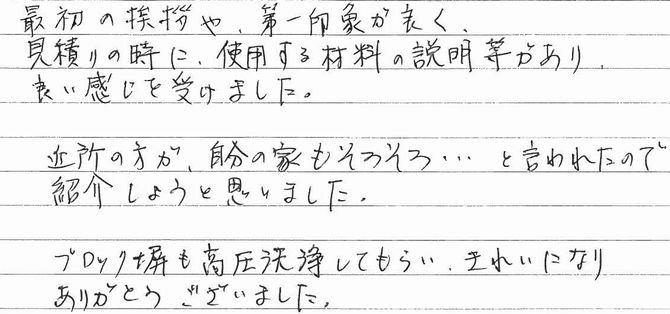 最初の挨拶や、第一印象が良く、
見積りの時に、使用する材料の説明等があり、
良い感じを受けました。
近所の方が、自分の家もそろそろ… と言われたので
紹介しようと思いました。
ブロック塀も高圧洗浄してもらい、きれいになり
ありがとう ございました。